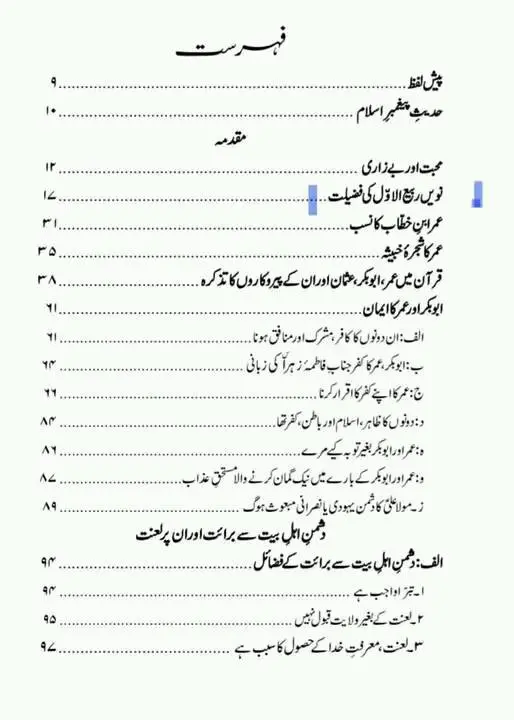 فہرست
پیش لفظ ........ ۹
حدیثِ پیغمبرِ اسلام ........ ۱۰
مقدمہ
محبت اور بے زاری ........ ۱۲
نویں ربیع الاوّل کی فضیلت ........ ۱۷
عمر ابنِ خطّاب کا نسب ........ ۳۱
عمر کا شجرۂ خبیثہ ........ ۳۵
قرآن میں عمر، ابوبکر، عثمان اور ان کے پیروکاروں کا تذکرہ ........ ۳۸
ابوبکر اور عمر کا ایمان ........ ۶۱
الف: ان دونوں کا کافر، مشرک اور منافق ہونا ........ ۶۱
ب: ابوبکر، عمر کا کفر جنابِ فاطمۂ زہراؑ کی زبانی ........ ۶۴
ج: عمر کا اپنے کفر کا اقرار کرنا ........ ۶۶
د: دونوں کا ظاہر، اسلام اور باطن، کفر تھا ........ ۸۴
ہ: عمر اور ابوبکر بغیر توبہ کیے مرے ........ ۸۶
و: عمر اور ابوبکر کے بارے میں نیک گمان کرنے والا مستحقِ عذاب ........ ۸۷
ز۔ مولا علیؑ کا دشمن یہودی یا نصرانی مبعوث ہوگا ........ ۸۹
دشمنِ اہلِ بیت سے برائت اور ان پر لعنت
الف: دشمنِ اہلِ بیت سے برائت کے فضائل ........ ۹۴
۱۔ تبرّا واجب ہے ........ ۹۴
۲۔ لعنت کے بغیر ولایت قبول نہیں ........ ۹۵
۳۔ لعنت، معرفتِ خدا کے حصول کا سبب ہے ........ ۹۷